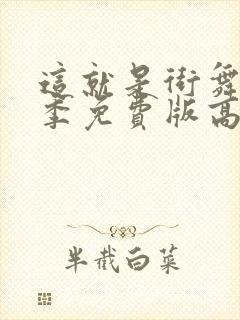 這就是街舞
季免費版高
半截白菜